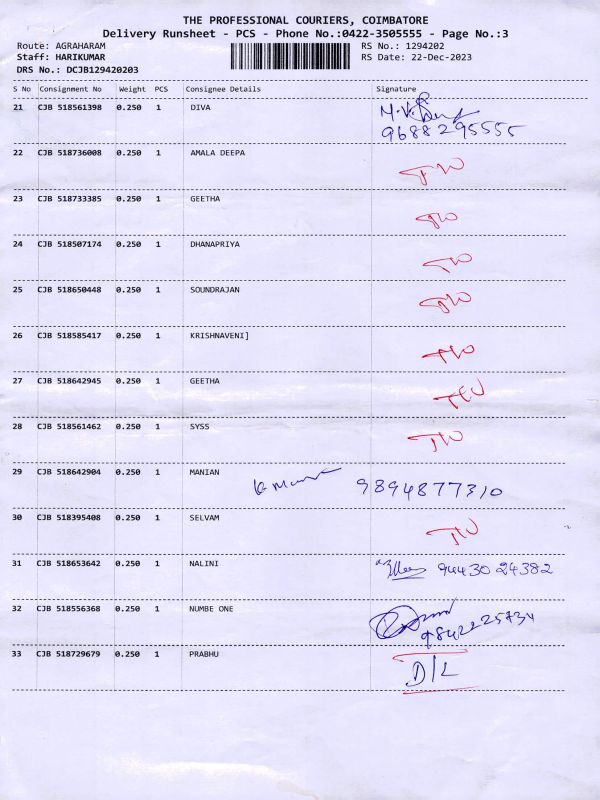 THE PROFESSIONAL COURIERS, COIMBATORE
Delivery Runsheet - PCS - Phone No.:0422-3505555 - Page No.:3
Route: AGRAHARAM RS No.: 1294202
Staff: HARIKUMAR RS Date: 22-Dec-2023
DRS No.: DCJB129420203
S No Consignment No Weight PCS Consignee Details Signature
21 CJB 518561398 0.250 1 DIVA
9688295555
22 CJB 518736008 0.250 1 AMALA DEEPA
23 CJB 518733385 0.250 1 GEETHA
24 CJB 518507174 0.250 1 DHANAPRIYA
25 CJB 518650448 0.250 1 SOUNDRAJAN
26 CJB 518585417 0.250 1 KRISHNAVENI]
27 CJB 518642945 0.250 1 GEETHA
28 CJB 518561462 0.250 1 SYSS
29 CJB 518642904 0.250 1 MANIAN 9894877310
30 CJB 518395408 0.250 1 SELVAM
31 CJB 518653642 0.250 1 NALINI 9443024382
32 CJB 518556368 0.250 1 NUMBE ONE
33 CJB 518729679 0.250 1 PRABHU D/L